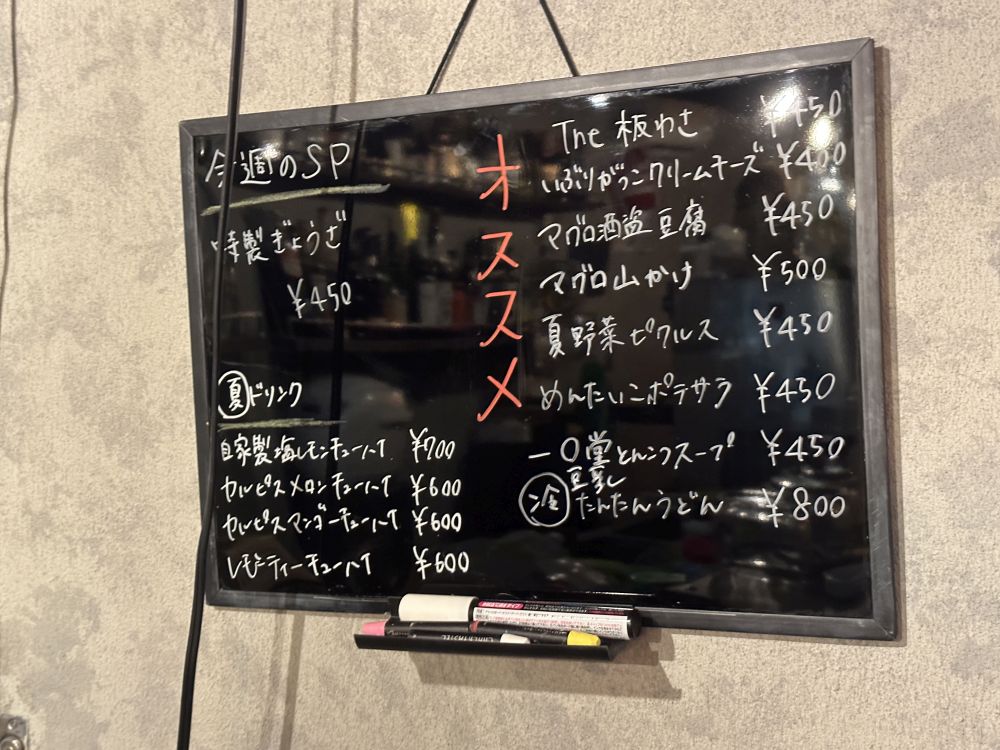 今週のSP
特製ぎょうざ
¥450
夏ドリンク
自家製塩レモンチューハイ ¥700
カルピスメロンチューハイ ¥600
カルピスマンゴーチューハイ ¥600
レモンティーチューハイ ¥600
オススメ
The 板わさ ¥450
いぶりがっこクリームチーズ ¥400
マグロ酒盗豆腐 ¥450
マグロ山かけ ¥500
夏野菜ピクルス ¥450
めんたいこポテサラ ¥450
一〇堂とんこつスープ ¥450
豆乳
冷 たんたんうどん ¥800